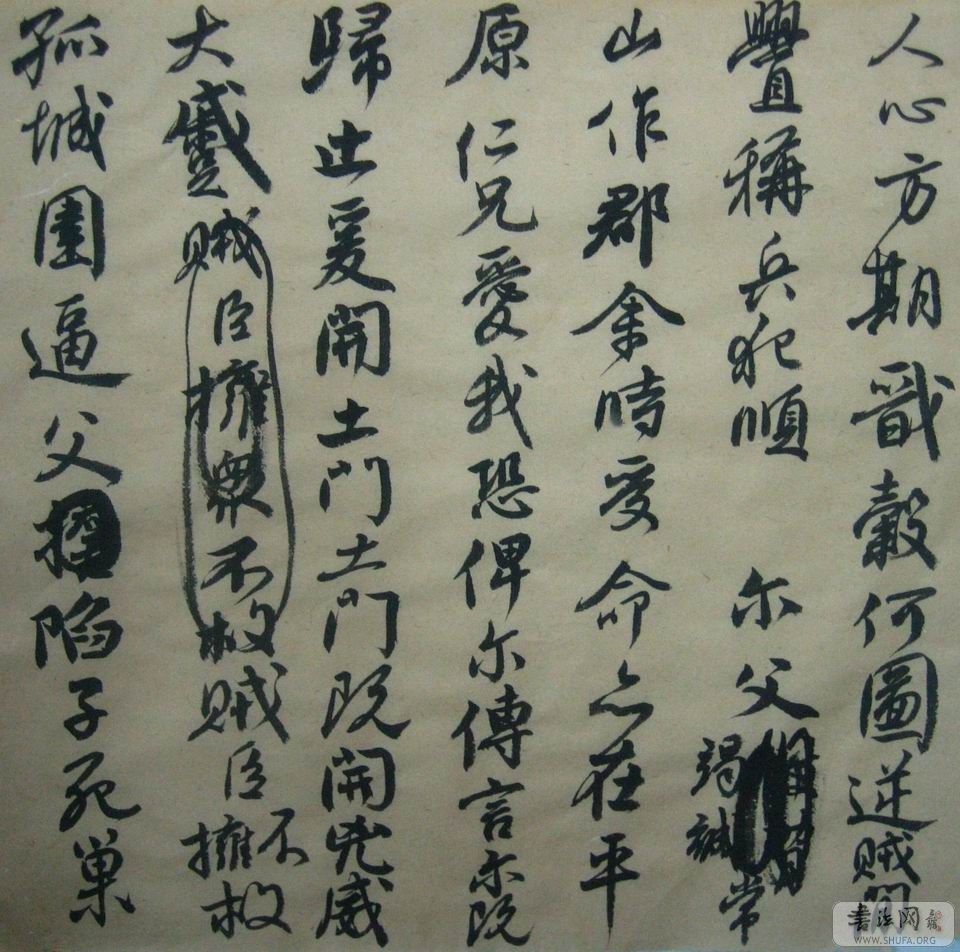 人心方期戩穀何圖逆賊間
釁稱兵犯順 尔父竭誠常
山作郡余時受命亦在平
原仁兄愛我恐俾尔傳言尔既
歸止爰開土門土門既開兇威
大蹙賊臣擁眾不救賊臣擁不救
孤城圍逼父陷子死巢
書法网
WWW.SHUFA.ORG